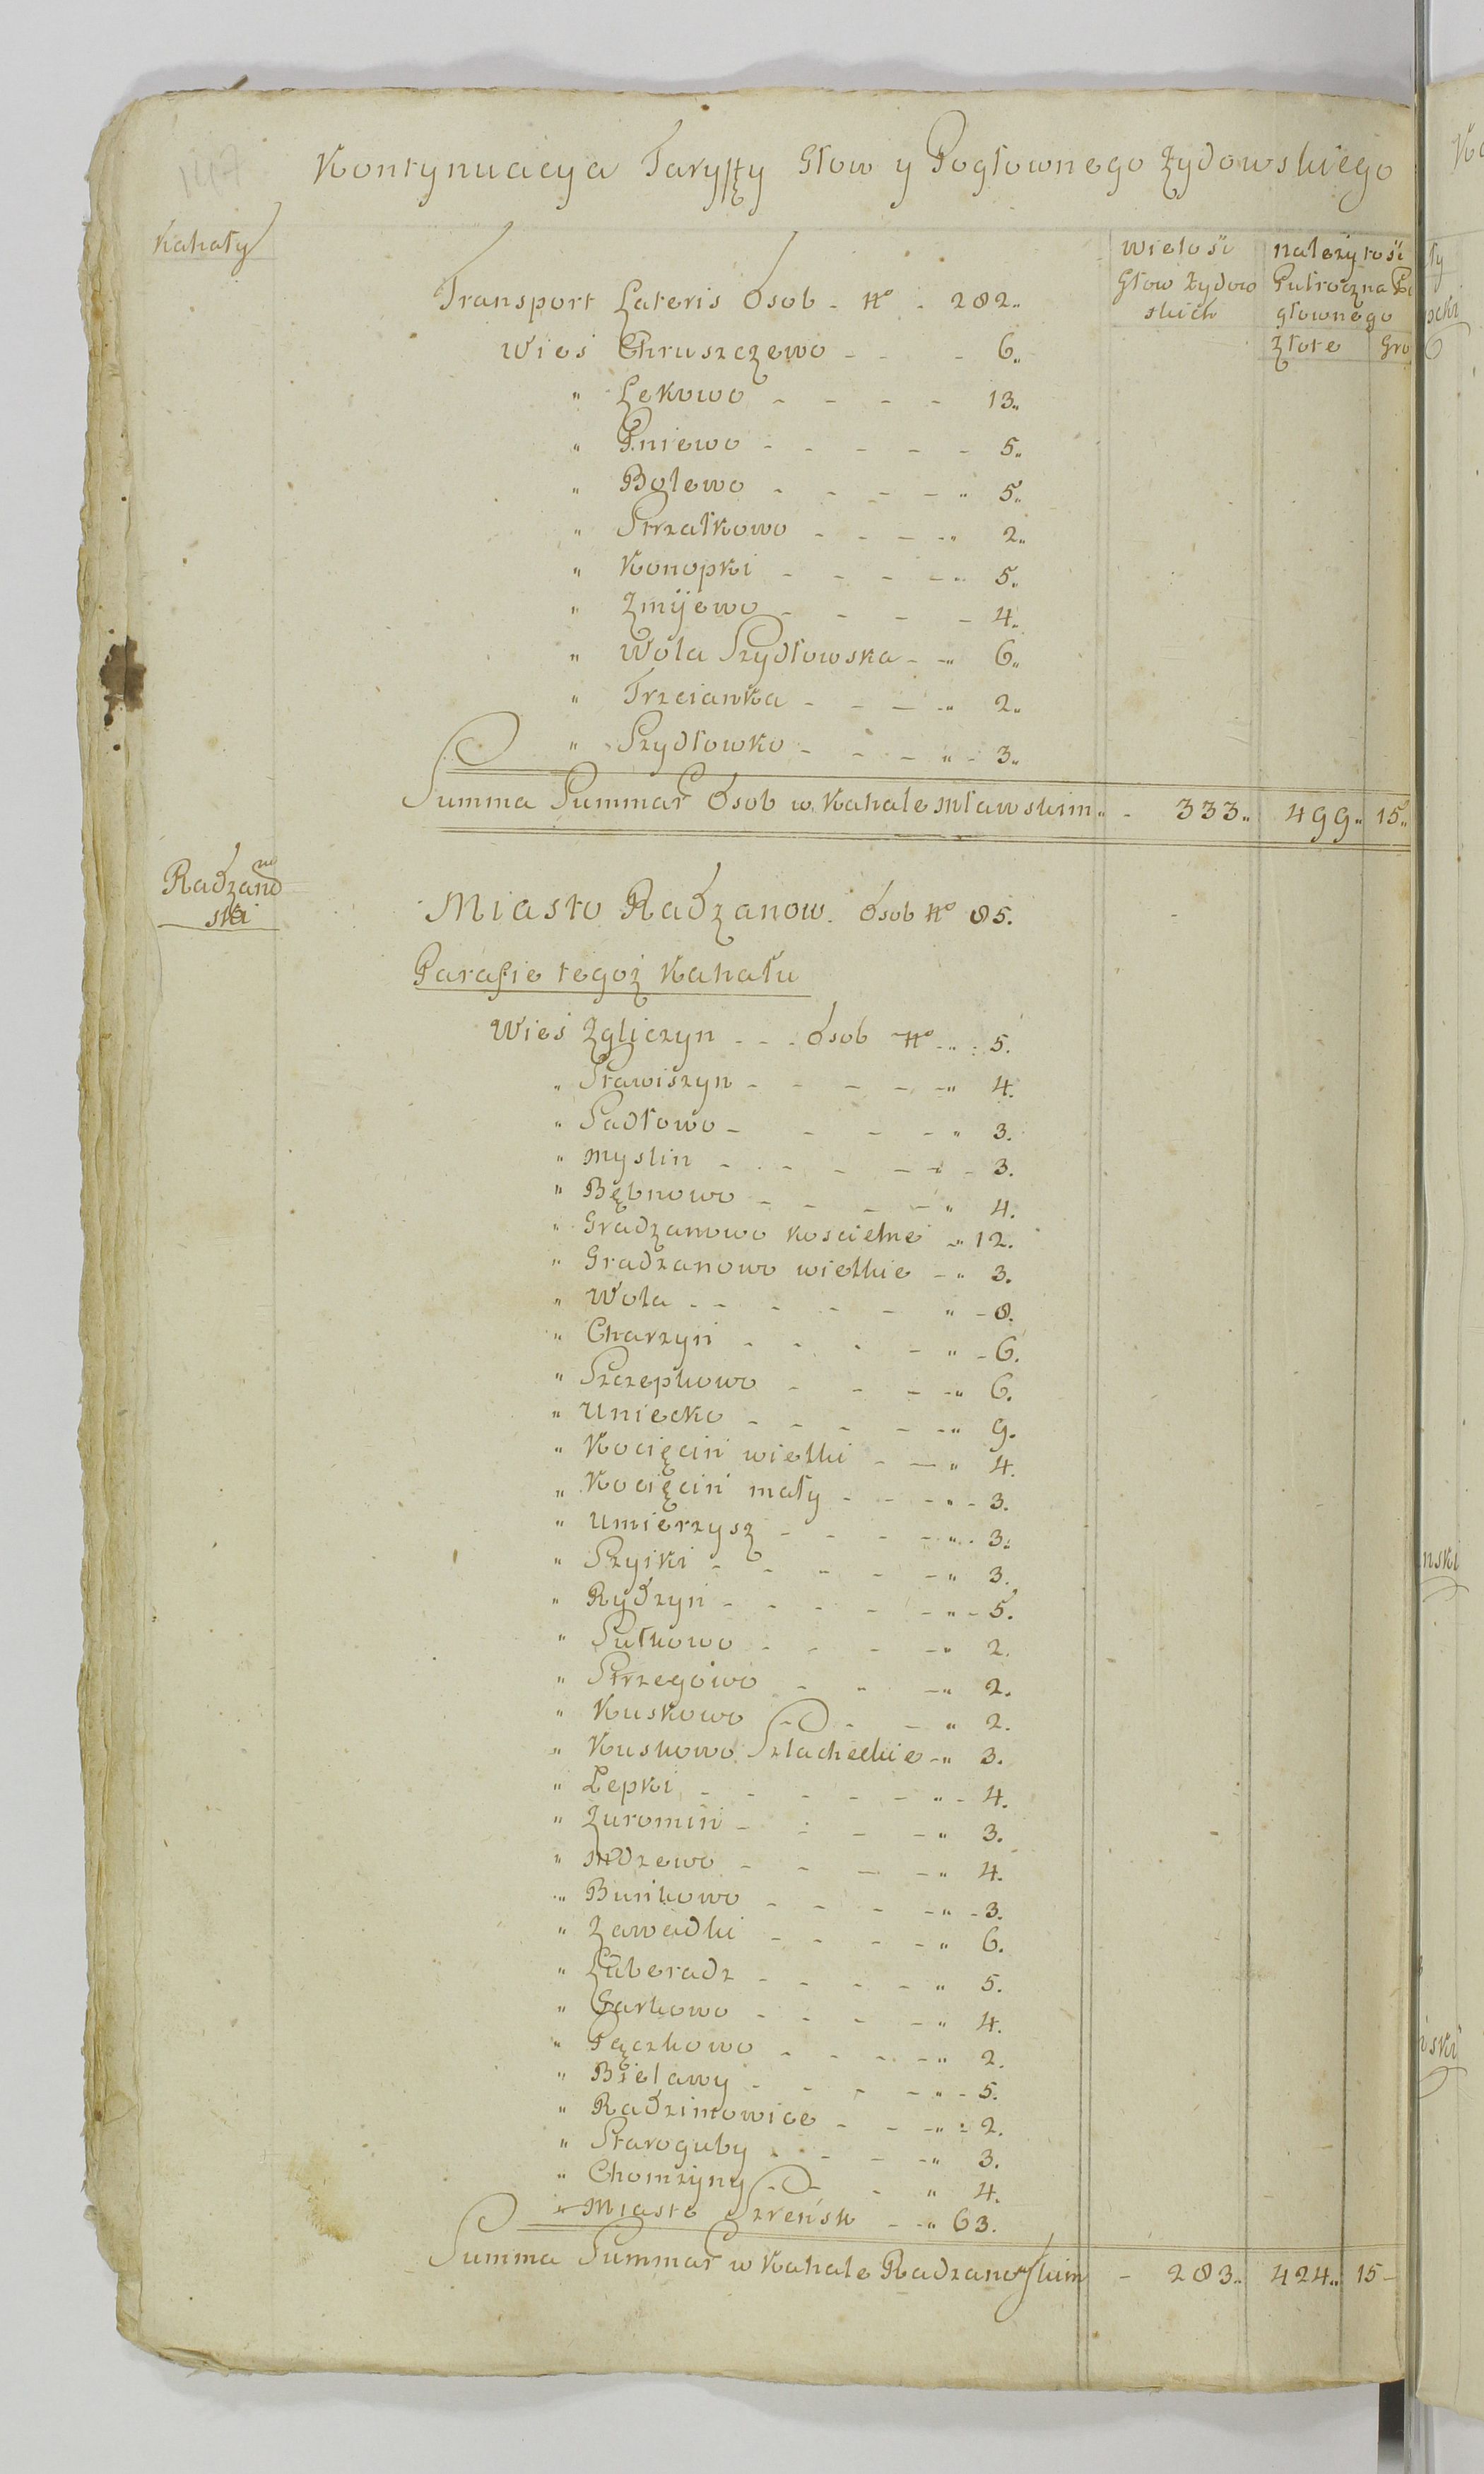 147
Kontynuacya Taryffy Głow y Pogłownego Żydowskiego
Kahały
Wielość Głow Żydowskich
należytość Pułroczna głownego
Złote Gro
Transport Lateris Osob - No - 282..
Wieś Chruszczewo - - - 6..
" Lekowo - - - - 13..
" Pniewo - - - - - 5..
" Bolewo - - - - " 5..
" Strzałkowo - - - - " 2..
" Konopki - - - - " 5..
" Zmijewo - - - - 4..
" Wola Szydłowska - - " 6..
" Trzcianka - - - - " 2..
" Szydłowko - - - " - 3..
Summa Summar Osob w Kahale Mławskim.. - 333.. 499.. 15..
Radzanow
ski
Miasto Radzanow. Osob No 85.
Parafie tegoż Kahału
Wieś Zgliczyn - - - Osob No - " : 5.
" Stawiszyn - - - - - " 4.
" Sadłowo - - - - " 3.
" Myslin - - - - - - 3.
" Bębnowo - - - - " 4.
" Gradzanowo koscielne - " 12.
" Gradzanowo wielkie - " 3.
" Wola - - - - - " - 8.
" Charzyń - - - - " - 6.
" Szczepkowo - - - - " 6.
" Uniecko - - - - - " 9.
" Kocięciń wielki - - " 4.
" Kocięciń mały - - - " - 3.
" Umierzysz - - - - " - 3.
" Szyiki - - - - - " 3.
" Rydzyń - - - - - " - 5.
" Sułkowo - - - - " 2.
" Strzegowo - - - " 2.
" Kuskowo - - - " 2.
" Kuskowo Szlacheckie - " 3.
" Łepki - - - - - " - 4.
" Zuromiń - - - - " 3.
" Mdzewo - - - - " 4.
" Buńkowo - - - - " - 3.
" Zawadki - - - - " 6.
" Luberadz - - - - " 5.
" Garkowo - - - - " 4.
" Pączkowo - - - - " 2.
" Bielawy - - - - " - 5.
" Radzimowice - - - " : 2.
" Staroguby - - - - " 3.
" Chomżyny - - - " 4.
" Miasto Szreńsk - - " 63.
Summa Summar w Kahale Radzanowskim - 283.. 424.. 15 -